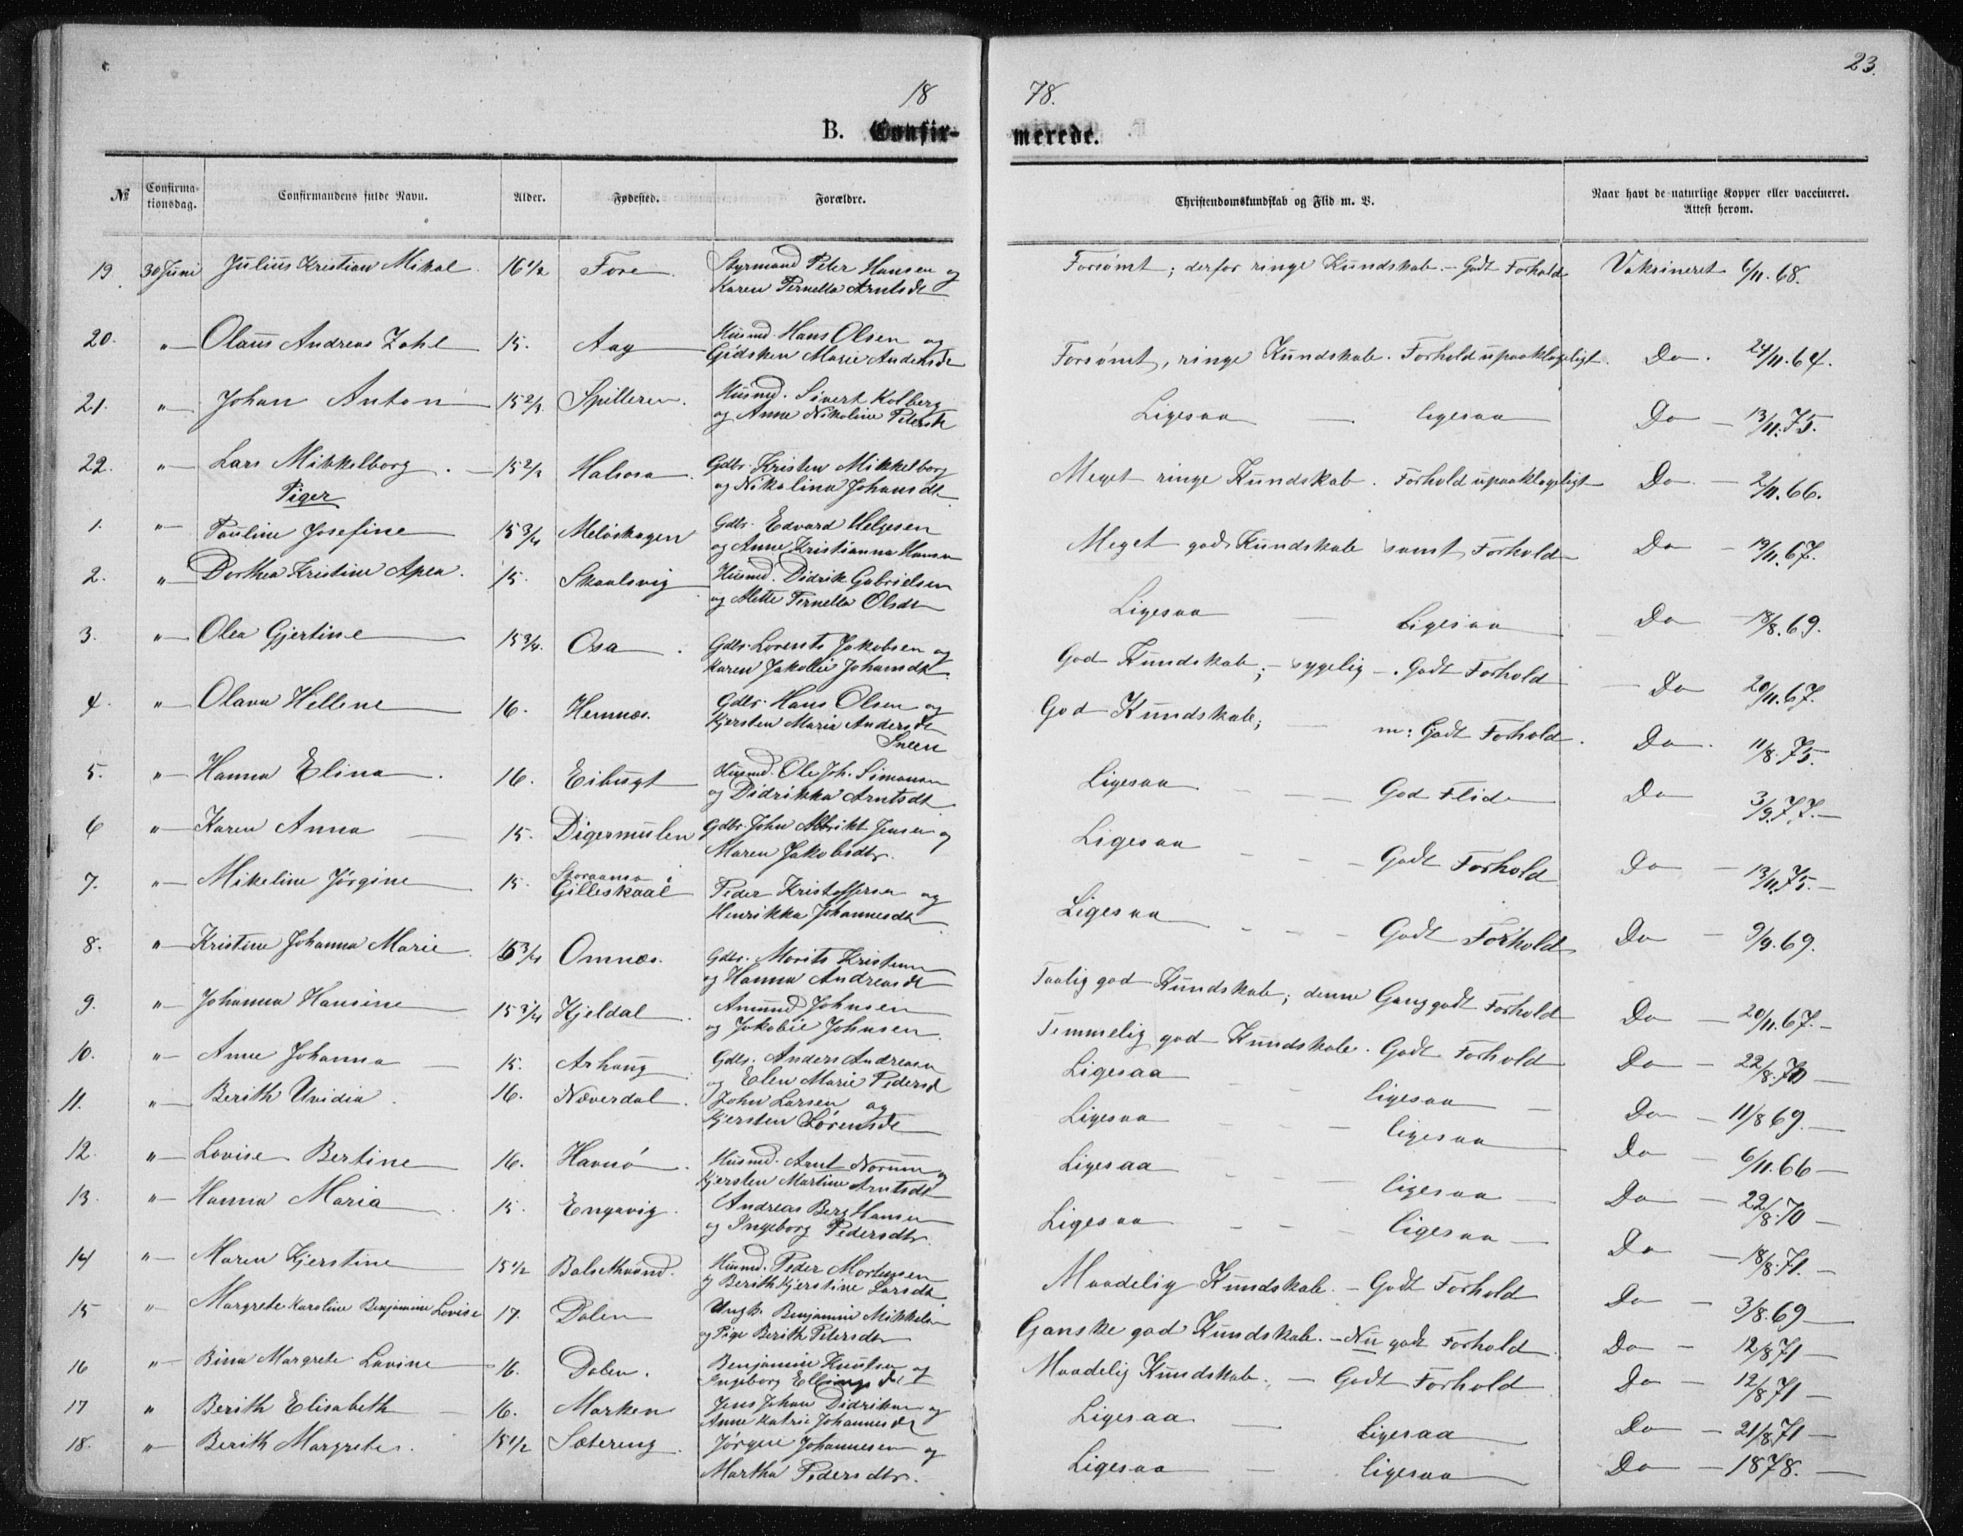 23.
18 78.
B. Confir- merede.
№ Confirma-tionsdag. Confirmandens fulde Navn. Alder. Fødested. Forældre. Christendomskundskab og Flid m. V. Naar havt de naturlige Kopper eller vaccineret. Attest herom.
19. 30 Juni Julius Kristian Mikal 16 1/2 Fore Styrmand Peter Hansen og Forsømt; derfor ringe Kundskab. - Godt Forhold Vaksineret 6/11.68.
Karen Pernella Arntsdt
20. " Olaus Andreas Zahl 15. Aag Husmd. Hans Olsen og Forsømt, ringe Kundskab. Forhold upaaklageligt. Do. 24/11.64.
Gidsken Marie Andersdt
21. " Johan Anton 15 2/3 Spilleren. Husmd. Sivert Kolberg Ligesaa ligesaa Do 13/11.75.
og Anne Nikoline Petersdt
22. " Lars Mikkelborg. 15 2/3 Halsosa Gdbr. Kristen Mikkelborg Meget ringe Kundskab. Forhold upaaklageligt Do 2/11.66.
og Nikolina Johansdt
Piger
1. " Pauline Josefine 15 3/4 Meløskagen Gdbr. Edvard Helgesen Meget god Kundskab samt Forhold Do 19/11.67.
og Anne Kristianna Hansen
2. " Dorthea Kristine Apea. 15. Skaalsvig Husmd. Didrik Gabrielsen Ligesaa Ligesaa Do 18/8.69.
og Mette Pernella Olsdt
3. " Olea Gjertine 15 3/4. Osa Gdbr. Lorents Jakobsen og God Kundskab; sygelig -. Godt Forhold Do 20/11.67.
Karen Jakobie Johansdt.
4. " Olava Hellene 16. Hemnæs. Gdbr. Hans Olsen og God Kundskab; m: Godt Forhold. Do. 11/8.75.
Kjersten Maria Andersdt
Sneen
5. " Hanna Elina. 16. Eibugt Husmd. Ole Joh. Simonsen Ligesaa God Flid Do 3/9.77.
og Didrikka Arntsdt
6 " Karen Anna 15. Digermulen Gdbr. John Albrikt Jensen og Ligesaa Godt Forhold Do 13/11.75.
Maren Jakobsdtr.
7. " Mikeline Jørgine 15. Storaansa i
Gilleskaal Peder Kristoffersen og Ligesaa Godt Forhold Do 9/9.69.
Henrikka Johannesdt
8. " Kristine Johanna Marie 15 3/4 Omnæs. Gdbr. Morits Kristensen Taalig god Kundskab; denne Gang godt Forhold Do 20/11.67.
og Hanna Andreasdt
9. " Johanna Hansine 15 3/4 Kjeldal Amund Johnsen Temmelig god Kundskab. Godt Forhold Do 22/8.70
og Jakobie Johnsen.
10. " Anne Johanna 15. Arhaug Gdbr. Anders Andreasen Ligesaa ligesaa Do 11/8 69.
og Elen Marie Pedersdt
11. " Berith Unidia. 16. Næverdal. John Larsen og Ligesaa ligesaa Do 6/11.66
Kjersten Lorentsdt
12. " Lovise Bertine 16. Havnø Husmd. Arnt Norum og Ligesaa ligesaa Do 22/8.70
Kjersten Martine Arntsdt
13. " Hanna Maria 15. Engavig. Andreas Berg Hansen Ligesaa ligesaa Do 18/8.71.
og Ingeborg Pedersdtr.
14 " Maren Kjerstine 15 1/2 Balsethaand. Husmd. Peder Mortensen Maadelig Kundskab. - Godt Forhold Do 3/8.69
og Berith Kjerstine Larsdt
15 " Margrete Karoline Benjamine Lovise 17. Dalen Ungk. Benjamin Mikkelsen Ganske god Kundskab. - Nu godt Forhold. Do 12/8 71
og Pige Berith Petersdtr
16 " Bina Margrete Lovine 16. Dalen. Benjamin Knutsen og Maadelig Kundskab. - Godt Forhold Do 12/8 71
Ingeborg Ellingsdt
17 " Berith Elisabeth 16. Marken Jens Johan Didriksen og Ligesaa Ligesaa Do 21/8.71
Anne Katrie Johannesdt
18. " Berith Margrete. 15 1/2 Sætereng. Jørgen Johannesen og Ligesaa ligesaa Do 1878.
Martha Pedersdtr.